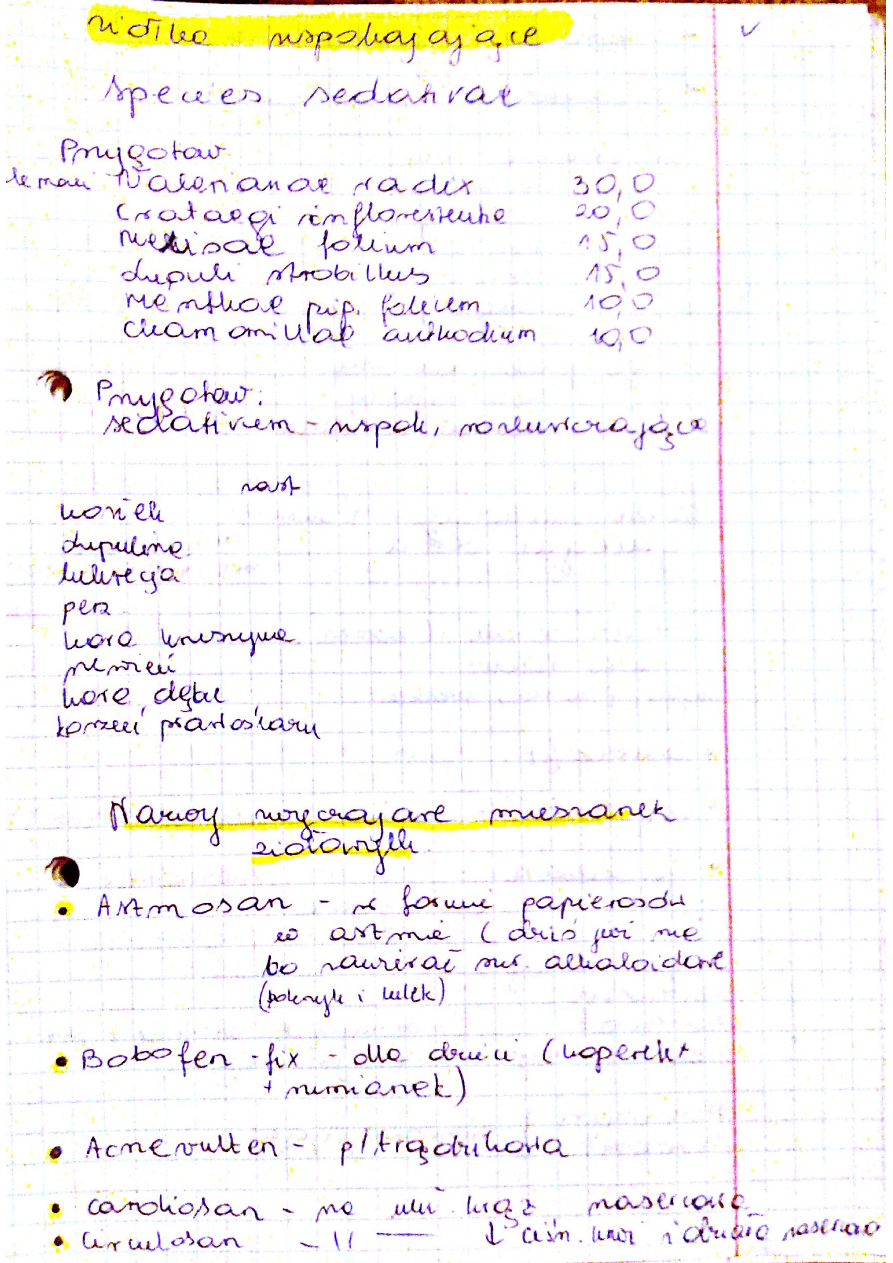 ziółka uspokajające
species sedativae
Przygotow.
Valerianae radix 30,0
Crataegi inflorescentia 20,0
Melisae folium 15,0
Lupuli strobillus 15,0
Menthae pip. folium 10,0
Chamomillae anthodium 10,0
Przygotow.
sedativum - uspok, rozkurczające
rast
kozłek
Lupulina
lukrecja
perz
kora kruszyna
rzewień
kora dębu
korzeń prawoślazu
Nazwy zwyczajowe mieszanek
ziołowych
Astmosan - w formie papierosów
w astmie (dziś już nie
bo zawierać sur. alkaloidowe
(pokrzyk i lulek)
Bobofen - fix - dla dzieci (koperek +
+ rumianek)
Acnevulten - p/trądzikowa
Cardiosan - na ukł krąż nasercowa
Circulosan - 11 — ↓ ciśn. krwi i działa nasercowo